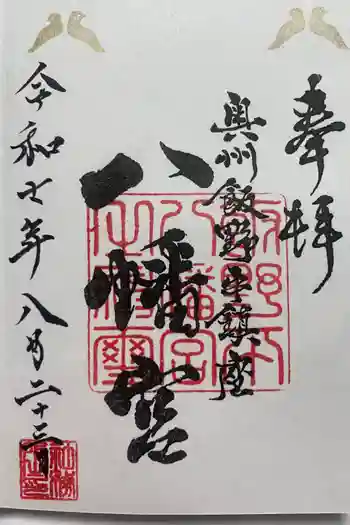 奉拝
奥州飯野平鎮座
八幡宮
令和七年八月二十三日